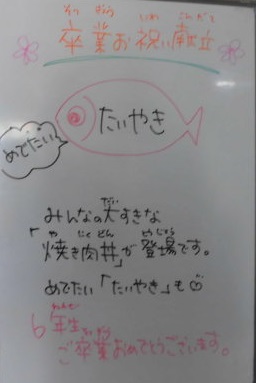 そつ ぎょう いわ こんだて
卒業お祝い献立
たいやき
めでたい
だい
みんなの大すきな
や にくどん とうじょう
「焼き肉丼」が登場です。
めでたい「たいやき」も
6年生
ご卒業おめでとうございます。